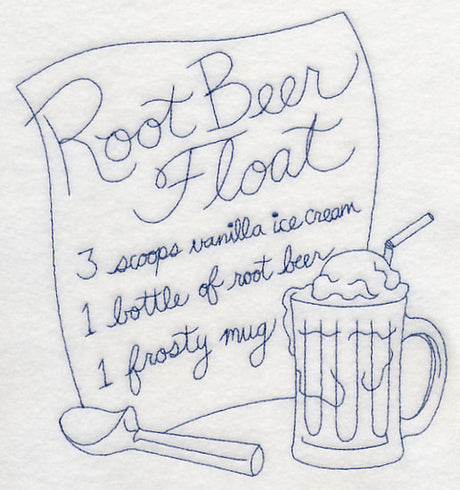 Root Beer
Float
3 scoops vanilla ice cream
1 bottle of root beer
1 frosty mug